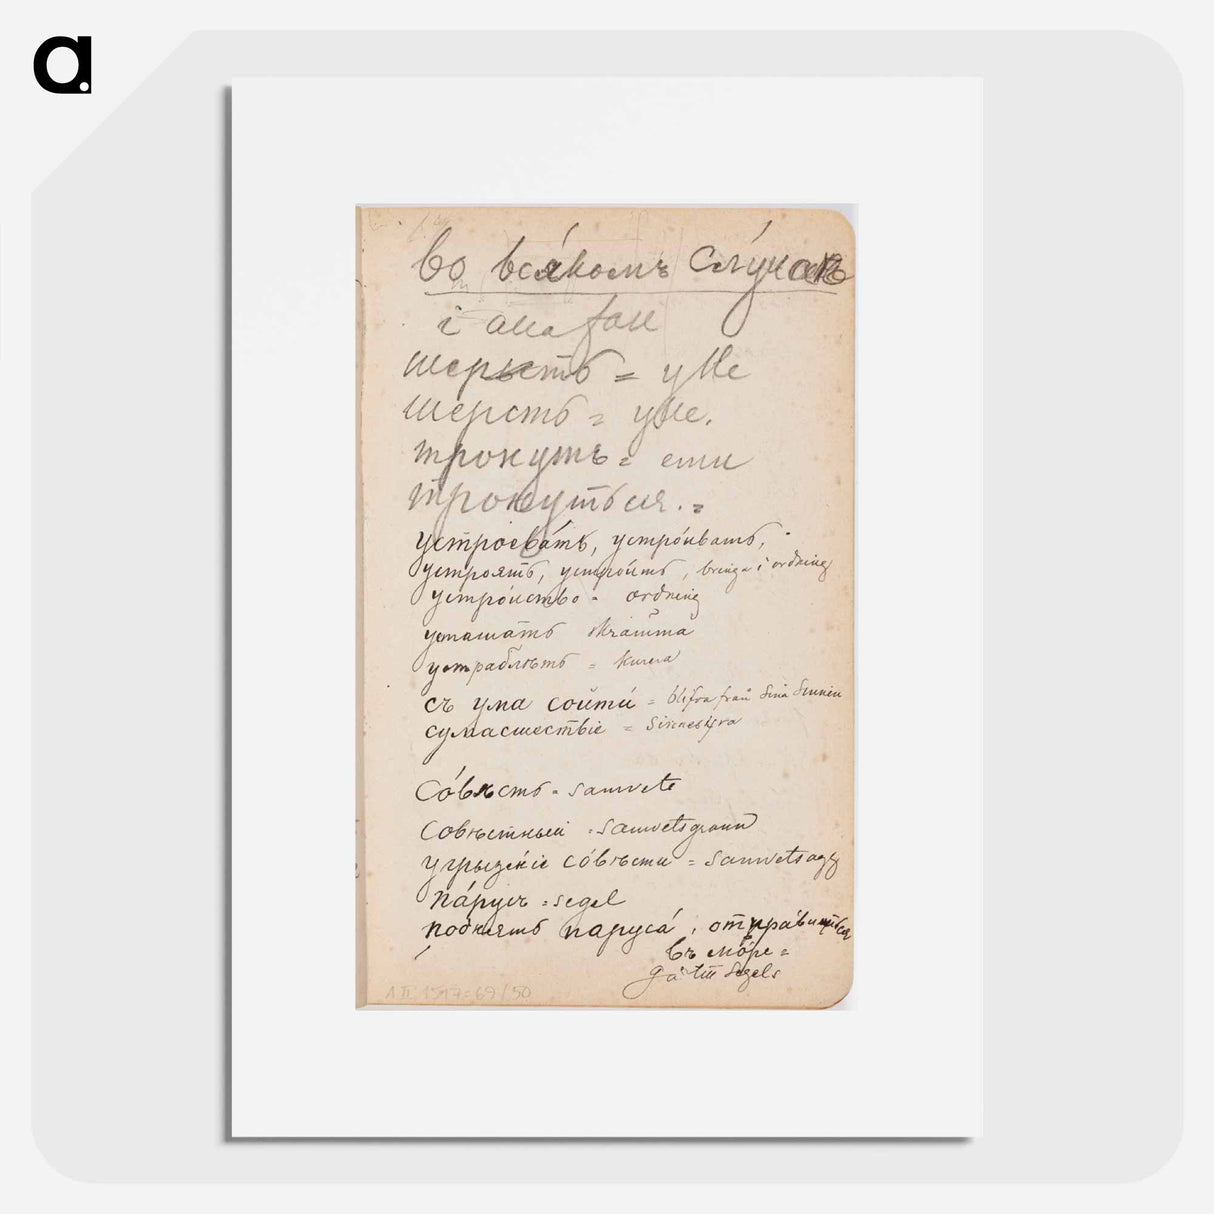 a.
во вся́комъ слу́чаѣ
i alla fall
шерьсть = ylle
шерсть = ylle.
тронуть =
тронуться. =
устроева́ть, устро́ивать,
устроять, устро́ить, bringa i ordning
устро́иство - ordning
устраша́ть skrämma
= kurera
съ ума сойти́ = från sina sinnen
сумасшествіе =
Со́вѣсть = samvete
совѣстныи = samvetsgrann
угрызе́ніе со́вѣсти = samvetsagg
па́русъ = segel
поднять паруса́, отпра́виться
въ мо́ре =
gå till segels
A II 1517:69/50